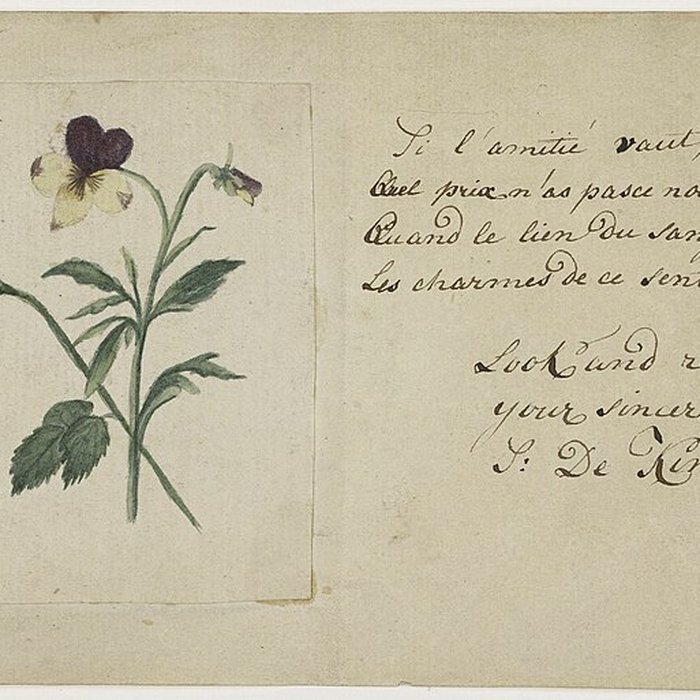 Si l'amitié vaut
Quel prix n'as pasce no
Quand le lien du san
Les charmes de ce sen
Look and r
your sincer
S: De Kin